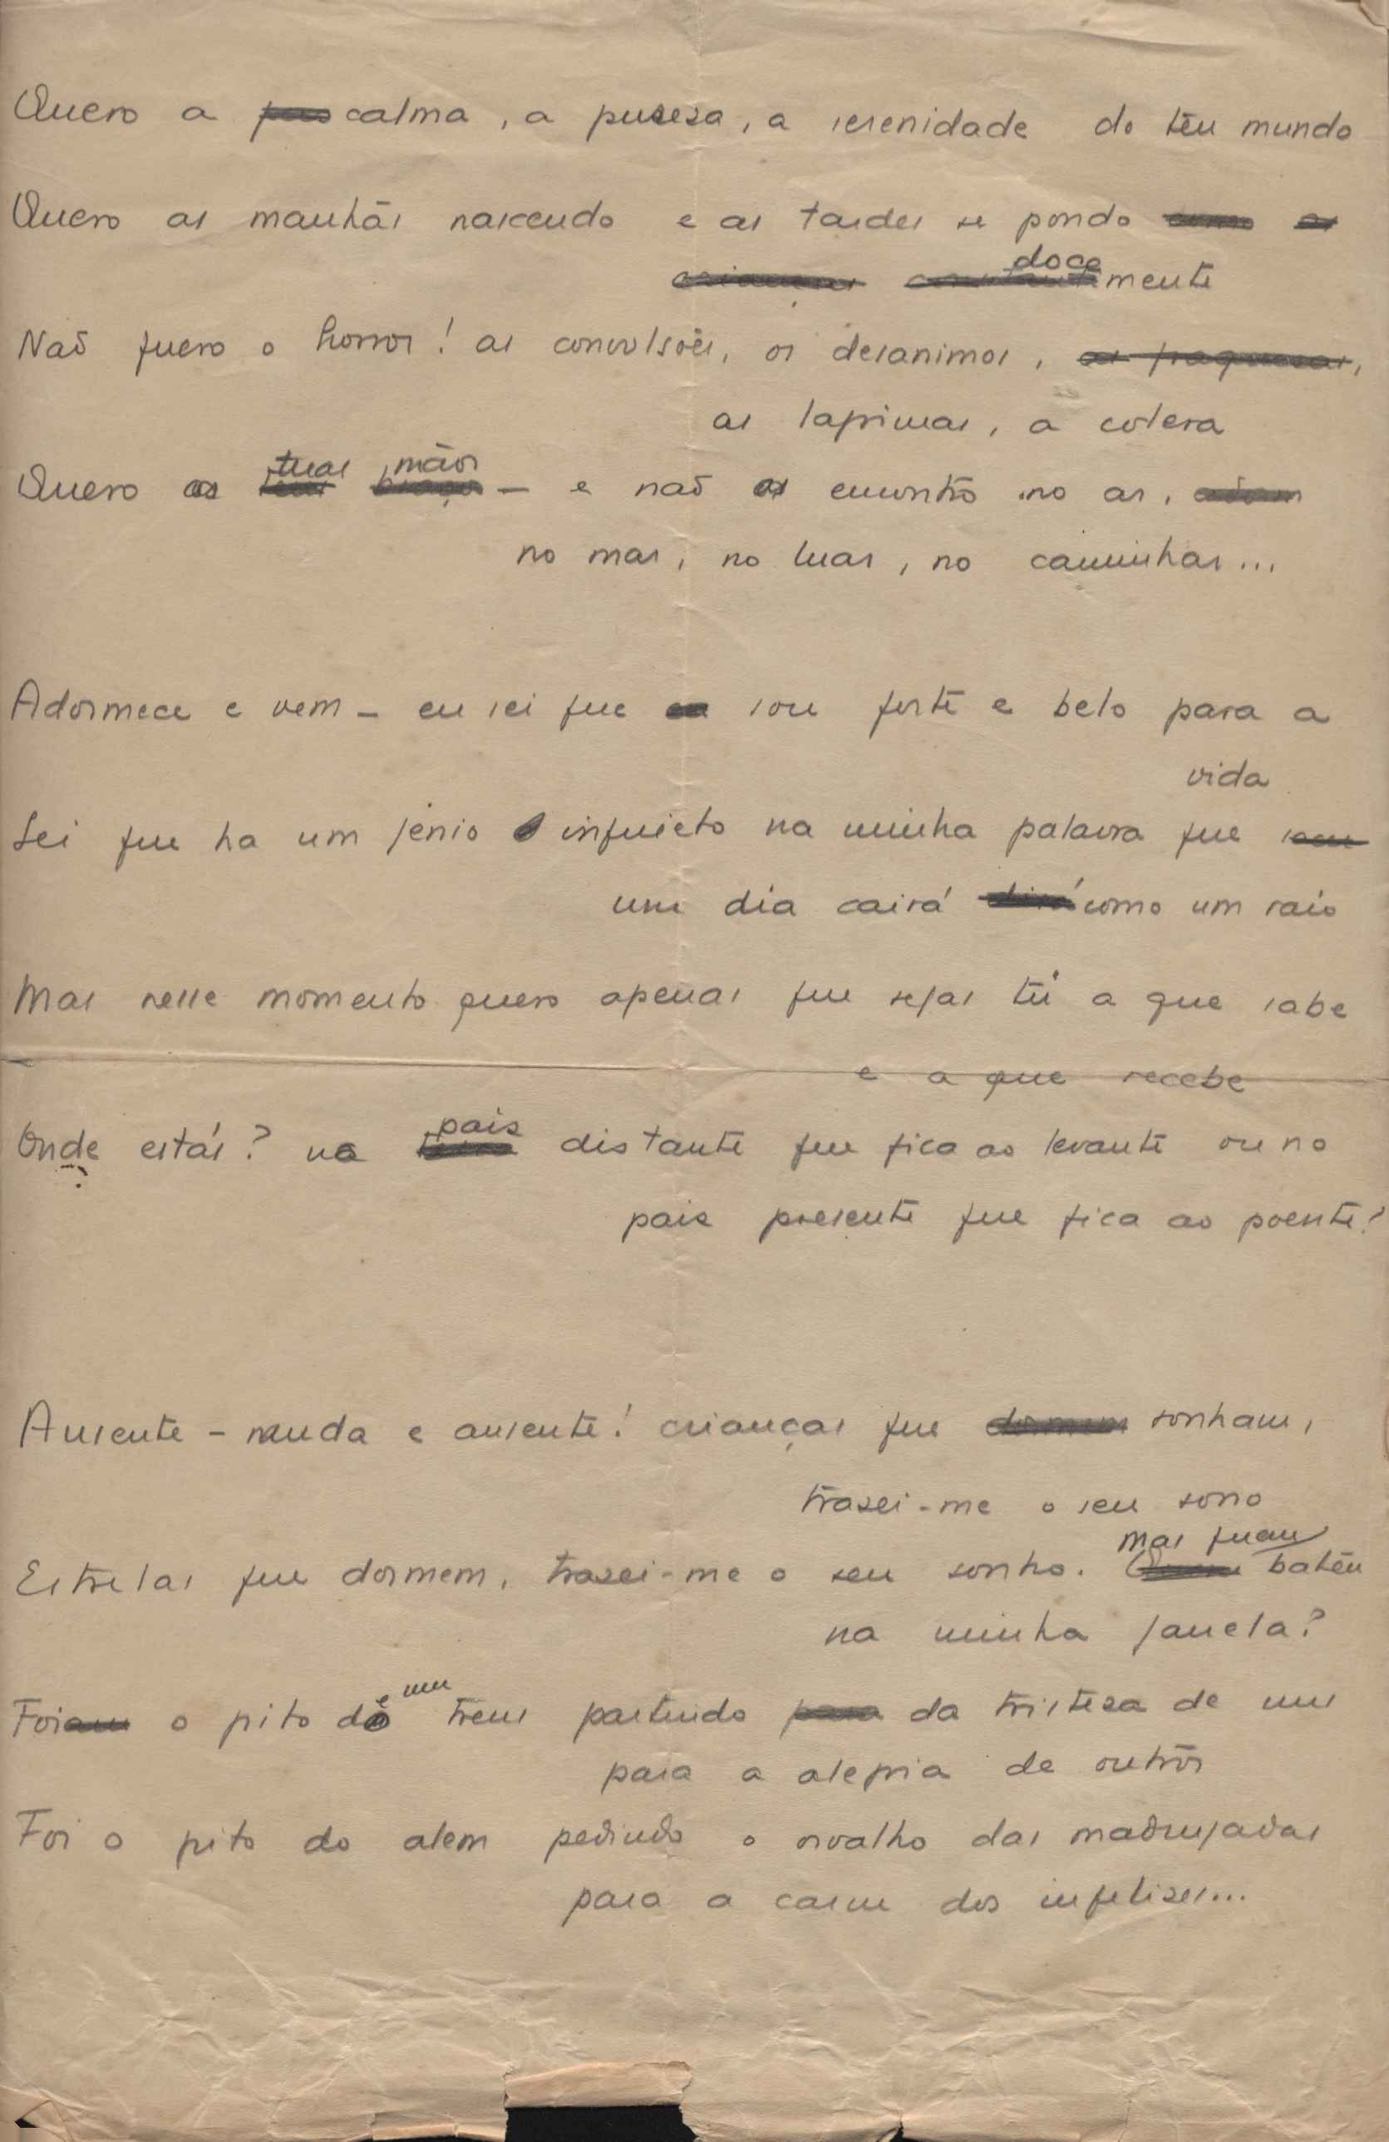 Quero a calma, a puresa, a serenidade do teu mundo
Quero as manhãs nascendo e as tardes se pondo como as
crianças doce
mente
Não quero o horror! as convulsões, os desanimos, as fraquezas,
as lagrimas, a colera
tuas mãos
Quero as braços — e não as encontro no ar,
no mar, no luar, no caminhar...
Adormece e vem — eu sei que sou forte e belo para a
vida
Sei que ha um jenio inquieto na minha palavra que
um dia cairá como um raio
Mas nesse momento quero apenas que sejas tú a que sabe
e a que recebe
pais
Onde estás? no distante que fica ao levante ou no
pais presente que fica ao poente?
Ausente — muda e ausente! crianças que dormem sonham,
trasei-me o seu sono
mas quem
Estrelas que dormem, trasei-me o seu sonho. Quem bateu
na minha janela?
um
Foi o grito de trem partindo para da tristesa de uns
para a alegria de outros
Foi o grito do alem pedindo o orvalho das madrugadas
para a carne dos infelises...